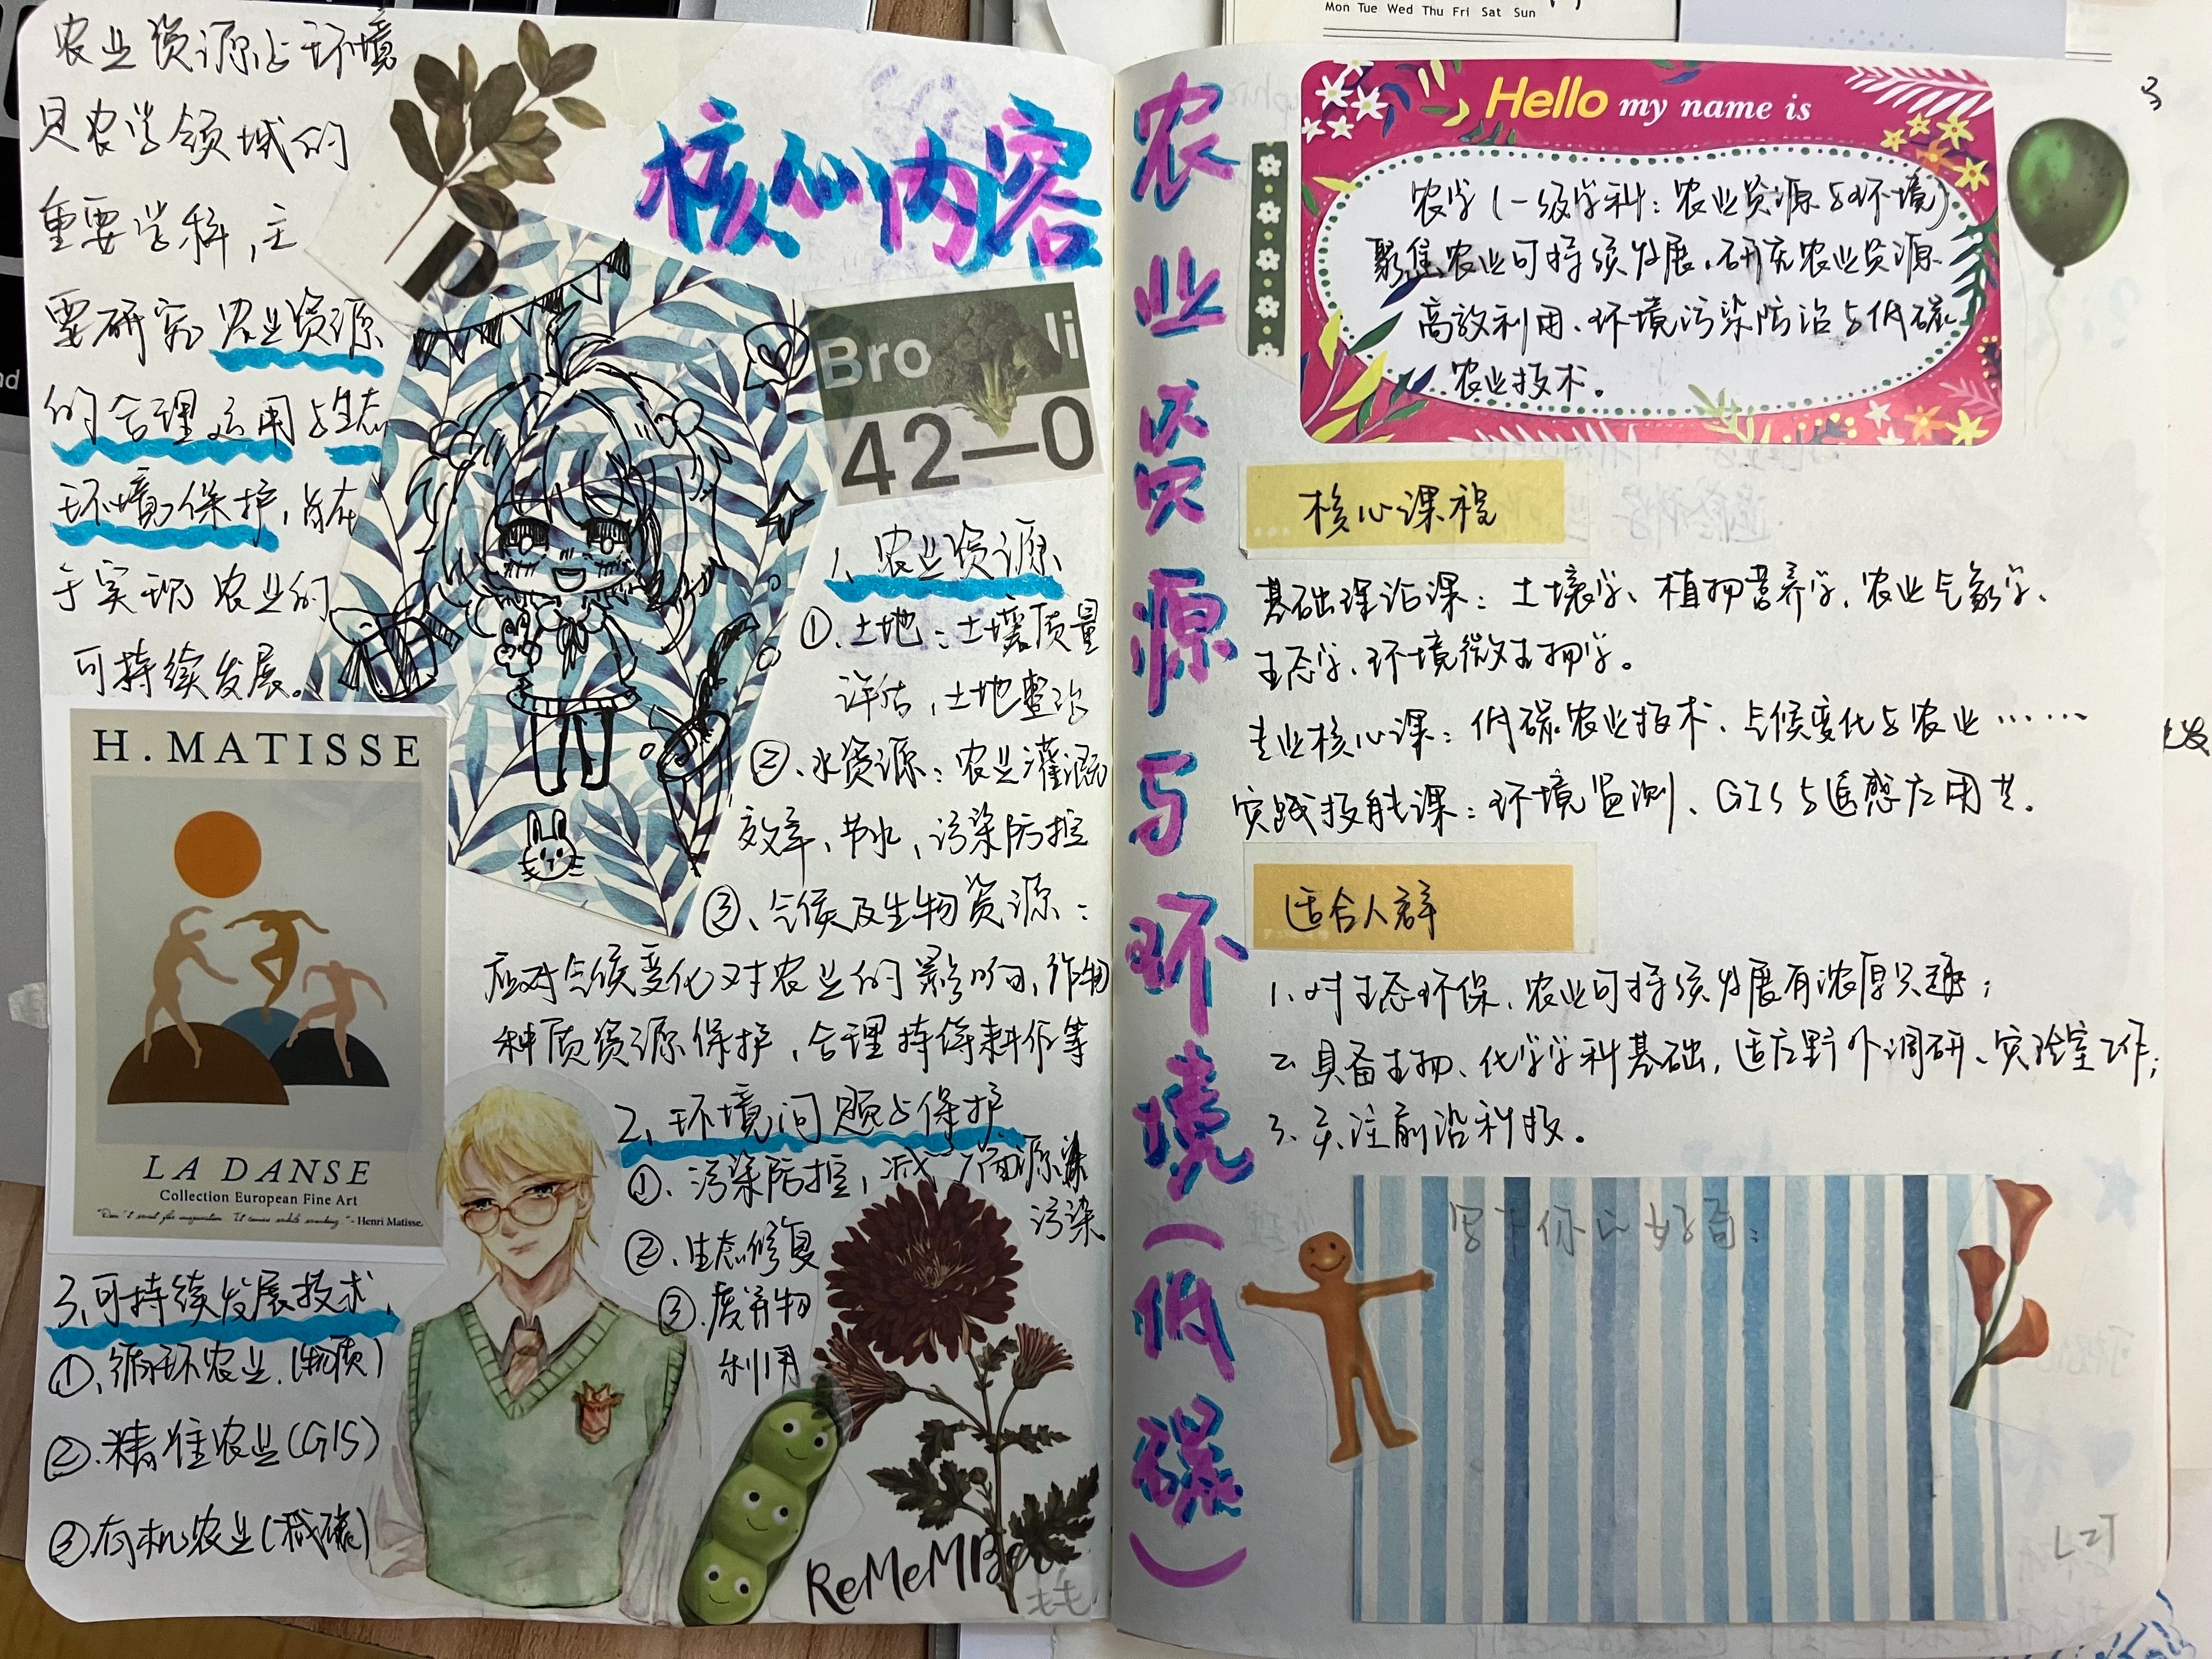 农业资源与环境
是农学领域的
重要学科，主
要研究农业资源
的合理运用与生态
环境保护，旨在
于实现农业的
可持续发展。
核心内容
Bro li
42—0
1、农业资源
①、土地：土壤质量
评估，土地整治
②、水资源：农业灌溉
效率，节水，污染防控
③、气候及生物资源：
应对气候变化对农业的影响，作物
种质资源保护，合理持待耕作等
2、环境问题与保护
①、污染防控，减少面源
污染
②、生态修复
③、废弃物
利用
H. MATISSE
LA DANSE
Collection European Fine Art
- Henri Matisse.
3、可持续发展技术
①、循环农业（物质）
②、精准农业（GIS）
③有机农业（减碳）
ReMeMBer
农业资源与环境（低碳）
Mon Tue Wed Thu Fri Sat Sun
Hello my name is
农学（一级学科：农业资源与环境）
聚焦农业可持续发展，研究农业资源
高效利用、环境污染防治与低碳
农业技术。
核心课程
基础理论课：土壤学、植物营养学、农业气象学、
生态学、环境微生物学。
专业核心课：低碳农业技术、气候变化与农业……
实践技能课：环境监测、GIS与遥感应用等。
适合人群
1、对生态环保、农业可持续发展有浓厚兴趣；
2、具备生物、化学学科基础，适应野外调研、实验室工作；
3、关注前沿科技。
写下你的好奇：